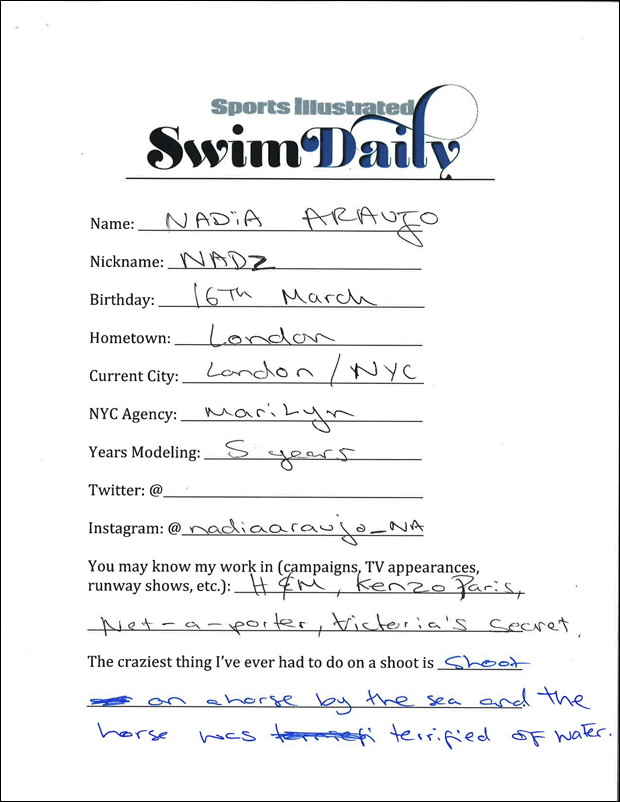 Sports Illustrated
Swim Daily
Name: NADiA ARAUJO
Nickname: NADZ
Birthday: 16Th March
Hometown: London
Current City: London / NYC
NYC Agency: MariLyn
Years Modeling: 5 years
Twitter: @
Instagram: @ nadiaaraujo_NA
You may know my work in (campaigns, TV appearances,
runway shows, etc.): H&M, Kenzo Paris,
Net-a-porter, Victoria's Secret,
The craziest thing I've ever had to do on a shoot is Shoot
on a horse by the sea and the
horse was terrified of water.